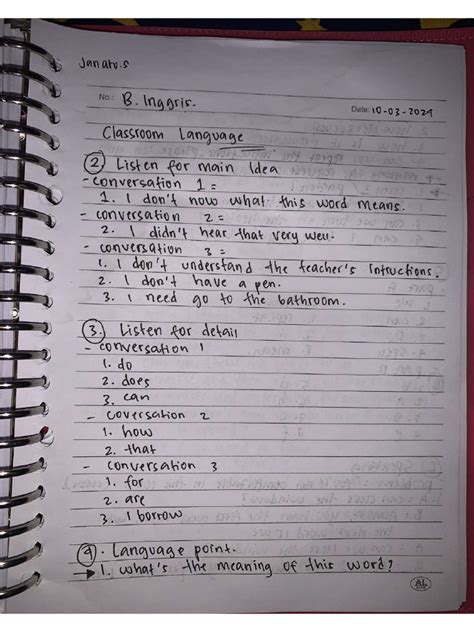 Janatv.s
No.: B. Inggris.
Date: 10-03-2024
Classroom Language
② Listen for main Idea
- conversation 1 =
1. I don't now what this word means.
- conversation 2 =
2. I didn't hear that very well.
- conversation 3 =
1. I don't understand the teacher's Intructions.
2. I don't have a pen.
3. I need go to the bathroom.
③. Listen for detail
- conversation 1
1. do
2. does
3. can
- coversation 2
1. how
2. that
- conversation 3
1. for
2. are
3. I borrow
④. Language point.
→ 1. what's the meaning of this word?